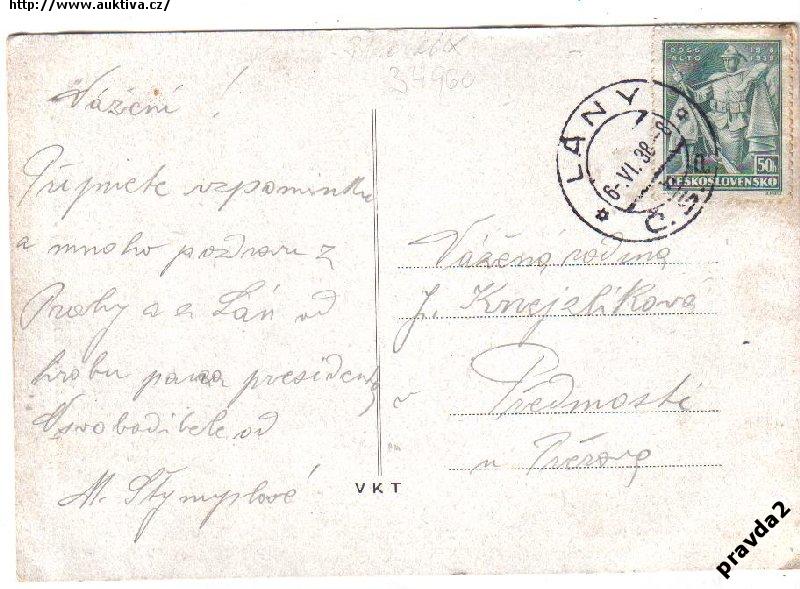 http://www.auktiva.cz/
34960
Vážení !
Přijměte vzpomínku
a mnoho pozdravů z
Prahy a z Lán od
hrobu pana presidenta
Osvoboditele od
M. Štymplové
VKT
LÁNY
6.VI.38.-8
DOSS ALTO
1918 1938
50h
ČESKOSLOVENSKO
Vážená rodina
J. Knejzlíková
v Předmostí
u Přerova
pravda2